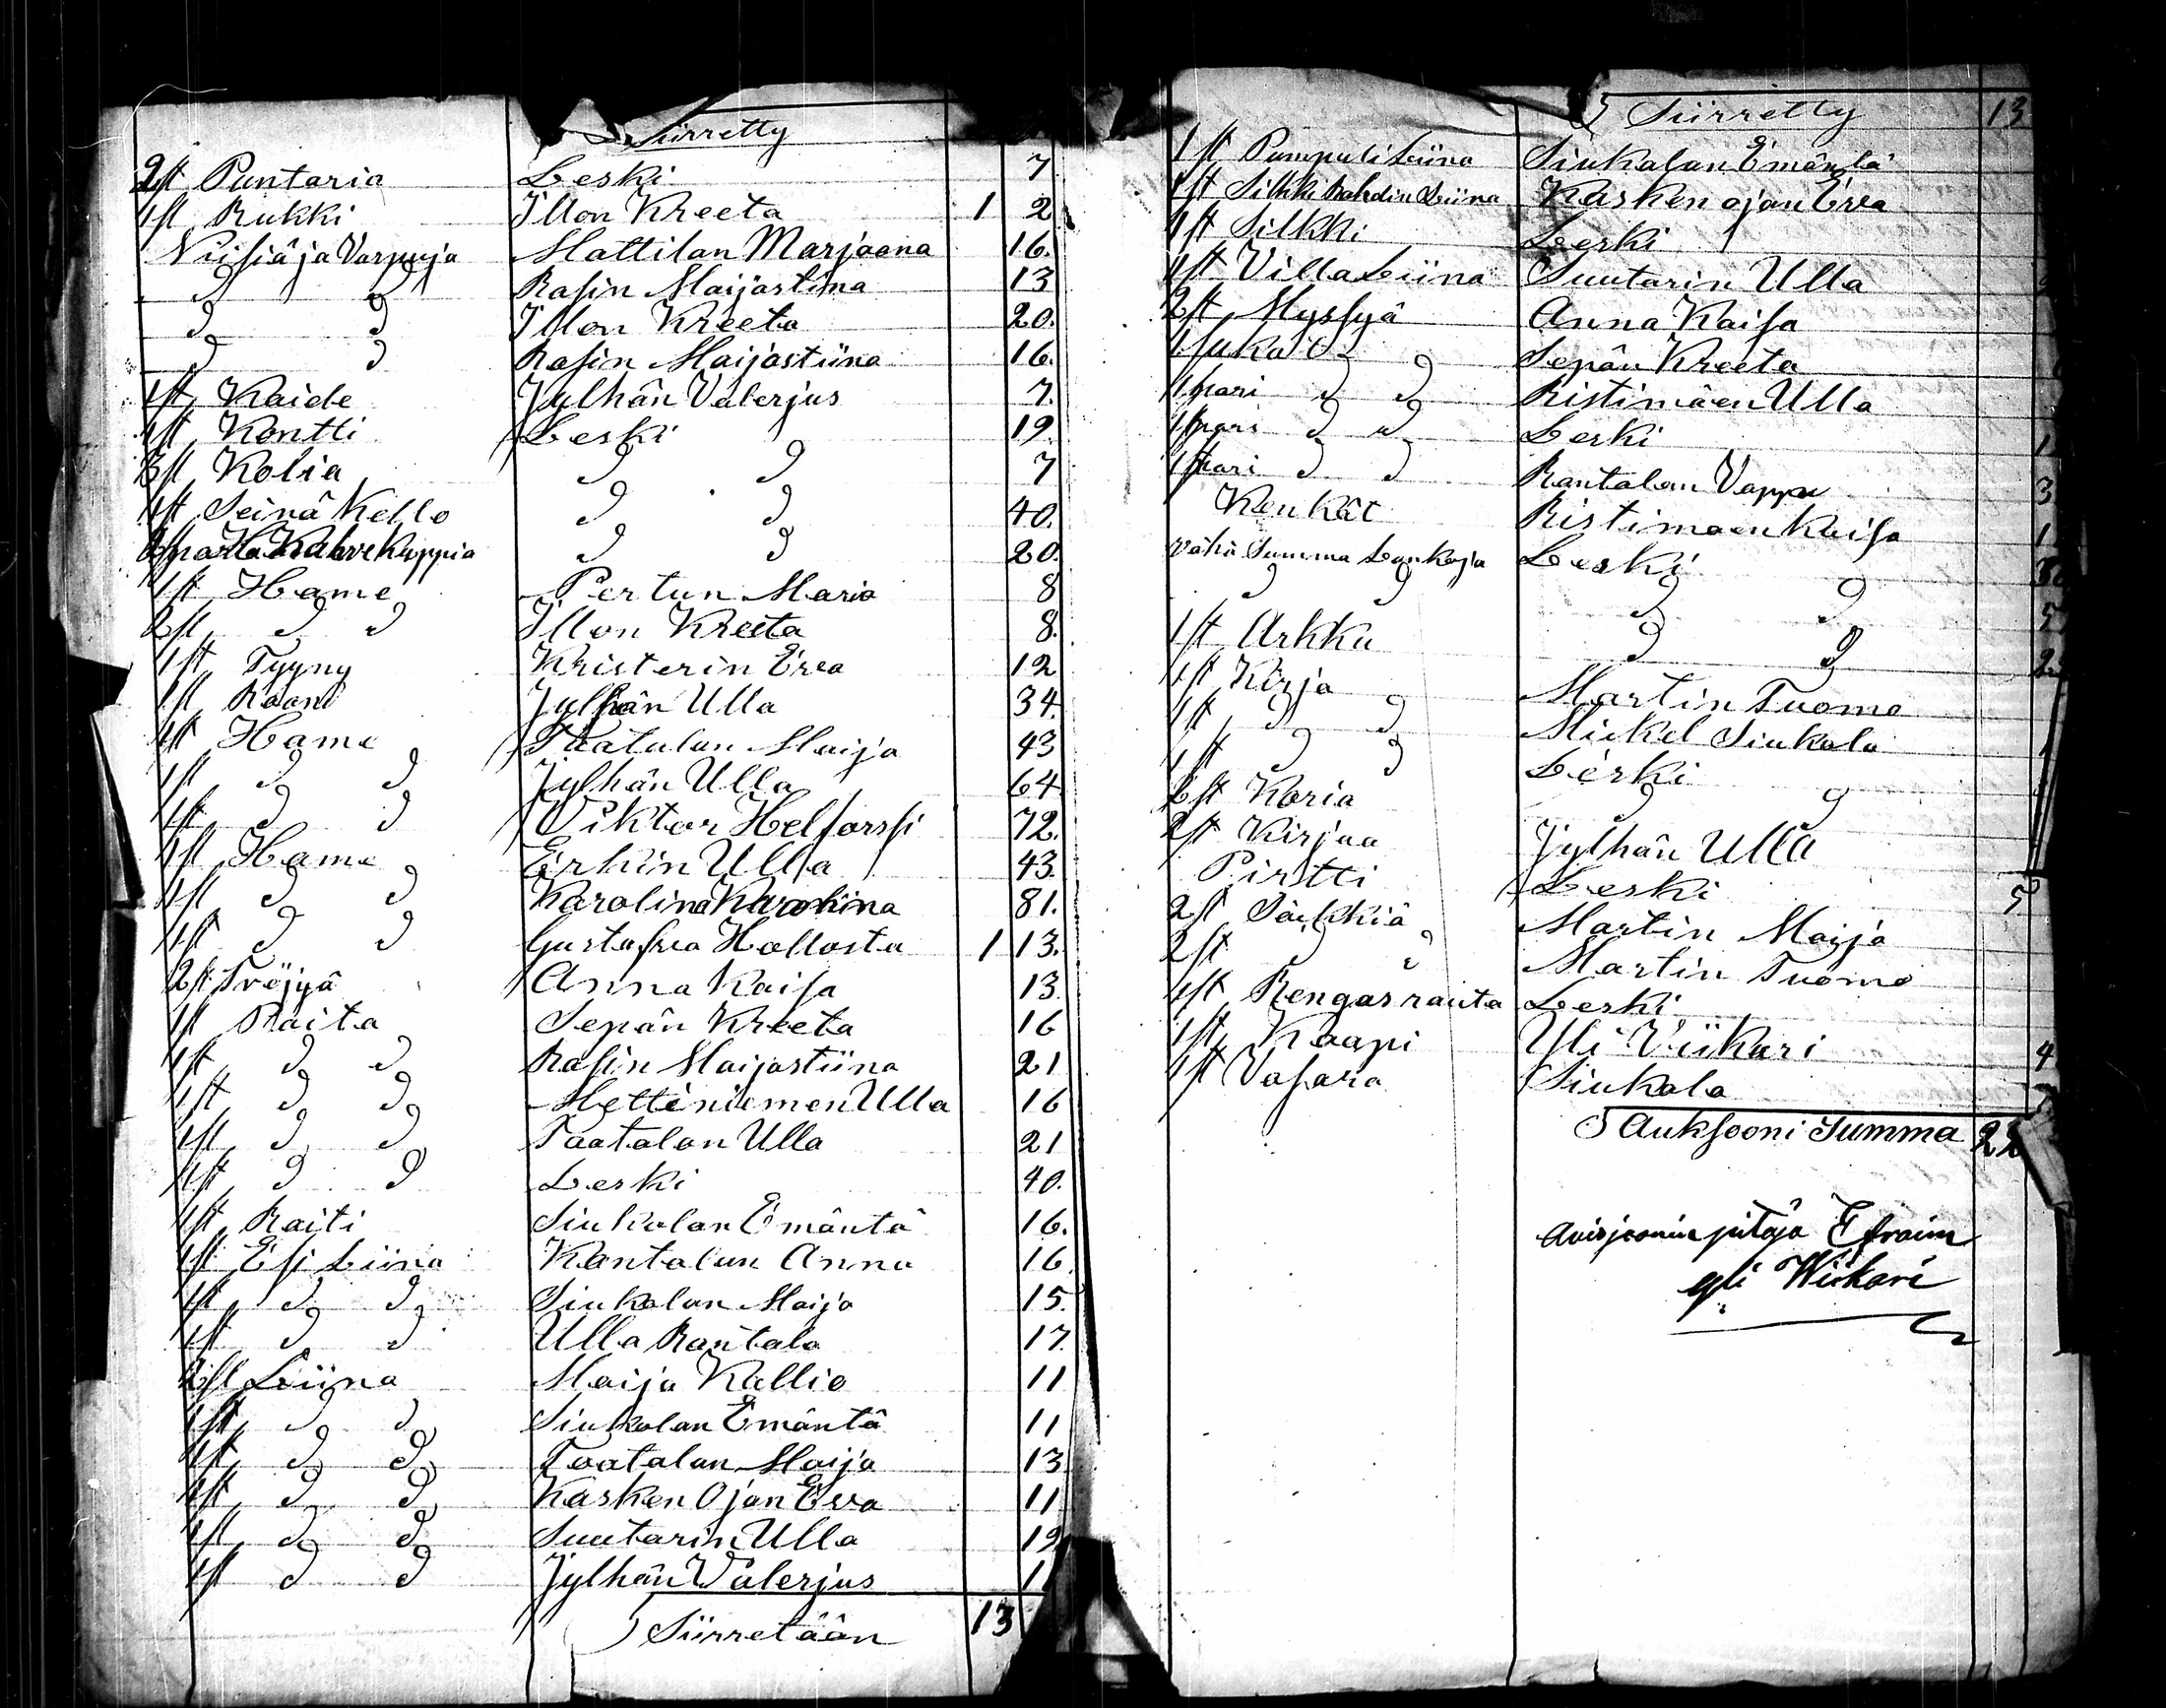 Siirretty
2 st Puntaria Leski 7
1 st Rukki Illon Kreeta 1 2
Niisiä ja Varpuja Mattilan Marjaana 16.
d d Rasin Maijastina 13
d d Illon Kreeta 20.
d d Rasin Maijastiina 16.
1 st Kaide Jylhän Valerjus 7.
1 st Kontti Leski 19.
3 st Kolia d d 7
1 st Seinä Kello d d 40.
Kahvekuppia d d 20.
1 st Hame Pertun Maria 8
2 st d d Illon Kreeta 8.
1 st Tyyny Kristerin Eeva 12
1 st Raanu Jylhän Ulla 34.
1 st Hame Taatalan Maija 43
1 st d d Jylhän Ulla 64
1 st d d Viktor Helforssi 72.
1 st Hame Erkin Ulla 43.
1 st d d Karolina Karokina 81.
1 st d d Hollosta 1 13.
2 st Tröjyä Anna Kaisa 13.
1 st Raita Sepän Kreeta 16
1 st d d Rasin Maijastiina 21
1 st d d Metteniemen Ulla 16
1 st d d Taatalan Ulla 21
1 st d d Leski 40.
1 st Raiti Siukolan Emäntä 16.
1 st Esi Liina Rantalan Anna 16
1 st d d Siukolan Maija 15.
1 st d d Ulla Rantala 17.
2 st Liina Maija Kallio 11
1 st d d Siukolan Emäntä 11
1 st d d Taatalan Maija 13
1 st d d Kasken Ojan Eeva 11
1 st d d Suutarin Ulla 19
1 st d d Jylhän Valerjus 11
Siirretään 13
Siirretty 13
1 st Pumpuli Liina Siukalan Emäntä
1 st Silkki Liina Kasken ojan Eeva
1 st Silkki Leski
1 st Villa Liina Suutarin Ulla
2 st Myssyä Anna Kaisa
1 sukat d Sepän Kreeta
1 pari d d Ristimäen Ulla
1 pari d d Leski 1
1 pari d d Rantalan Vappu 3
Kenkät Ristimäen Kaisa 1
Vähä Summa Lankoja Leski
d d d d 5
1 st Arkku d d 2
1 st Kirja Martin Tuomo
1 st d d Mickel Siukola
1 st d d Leski
2 st Koria d d
2 st Kirjaa Jylhän Ulla
Pirstti Leski 5
2 st Säkkiä Martin Maija
2 st d d Martin Tuomo
1 st Rengasrauta Leski
1 st Kaapi Yli Viikari 4
1 st Vasara Siukola
Auksooni Summa 22
Auisjoonin pitäjä Efraim
yli Wiikari